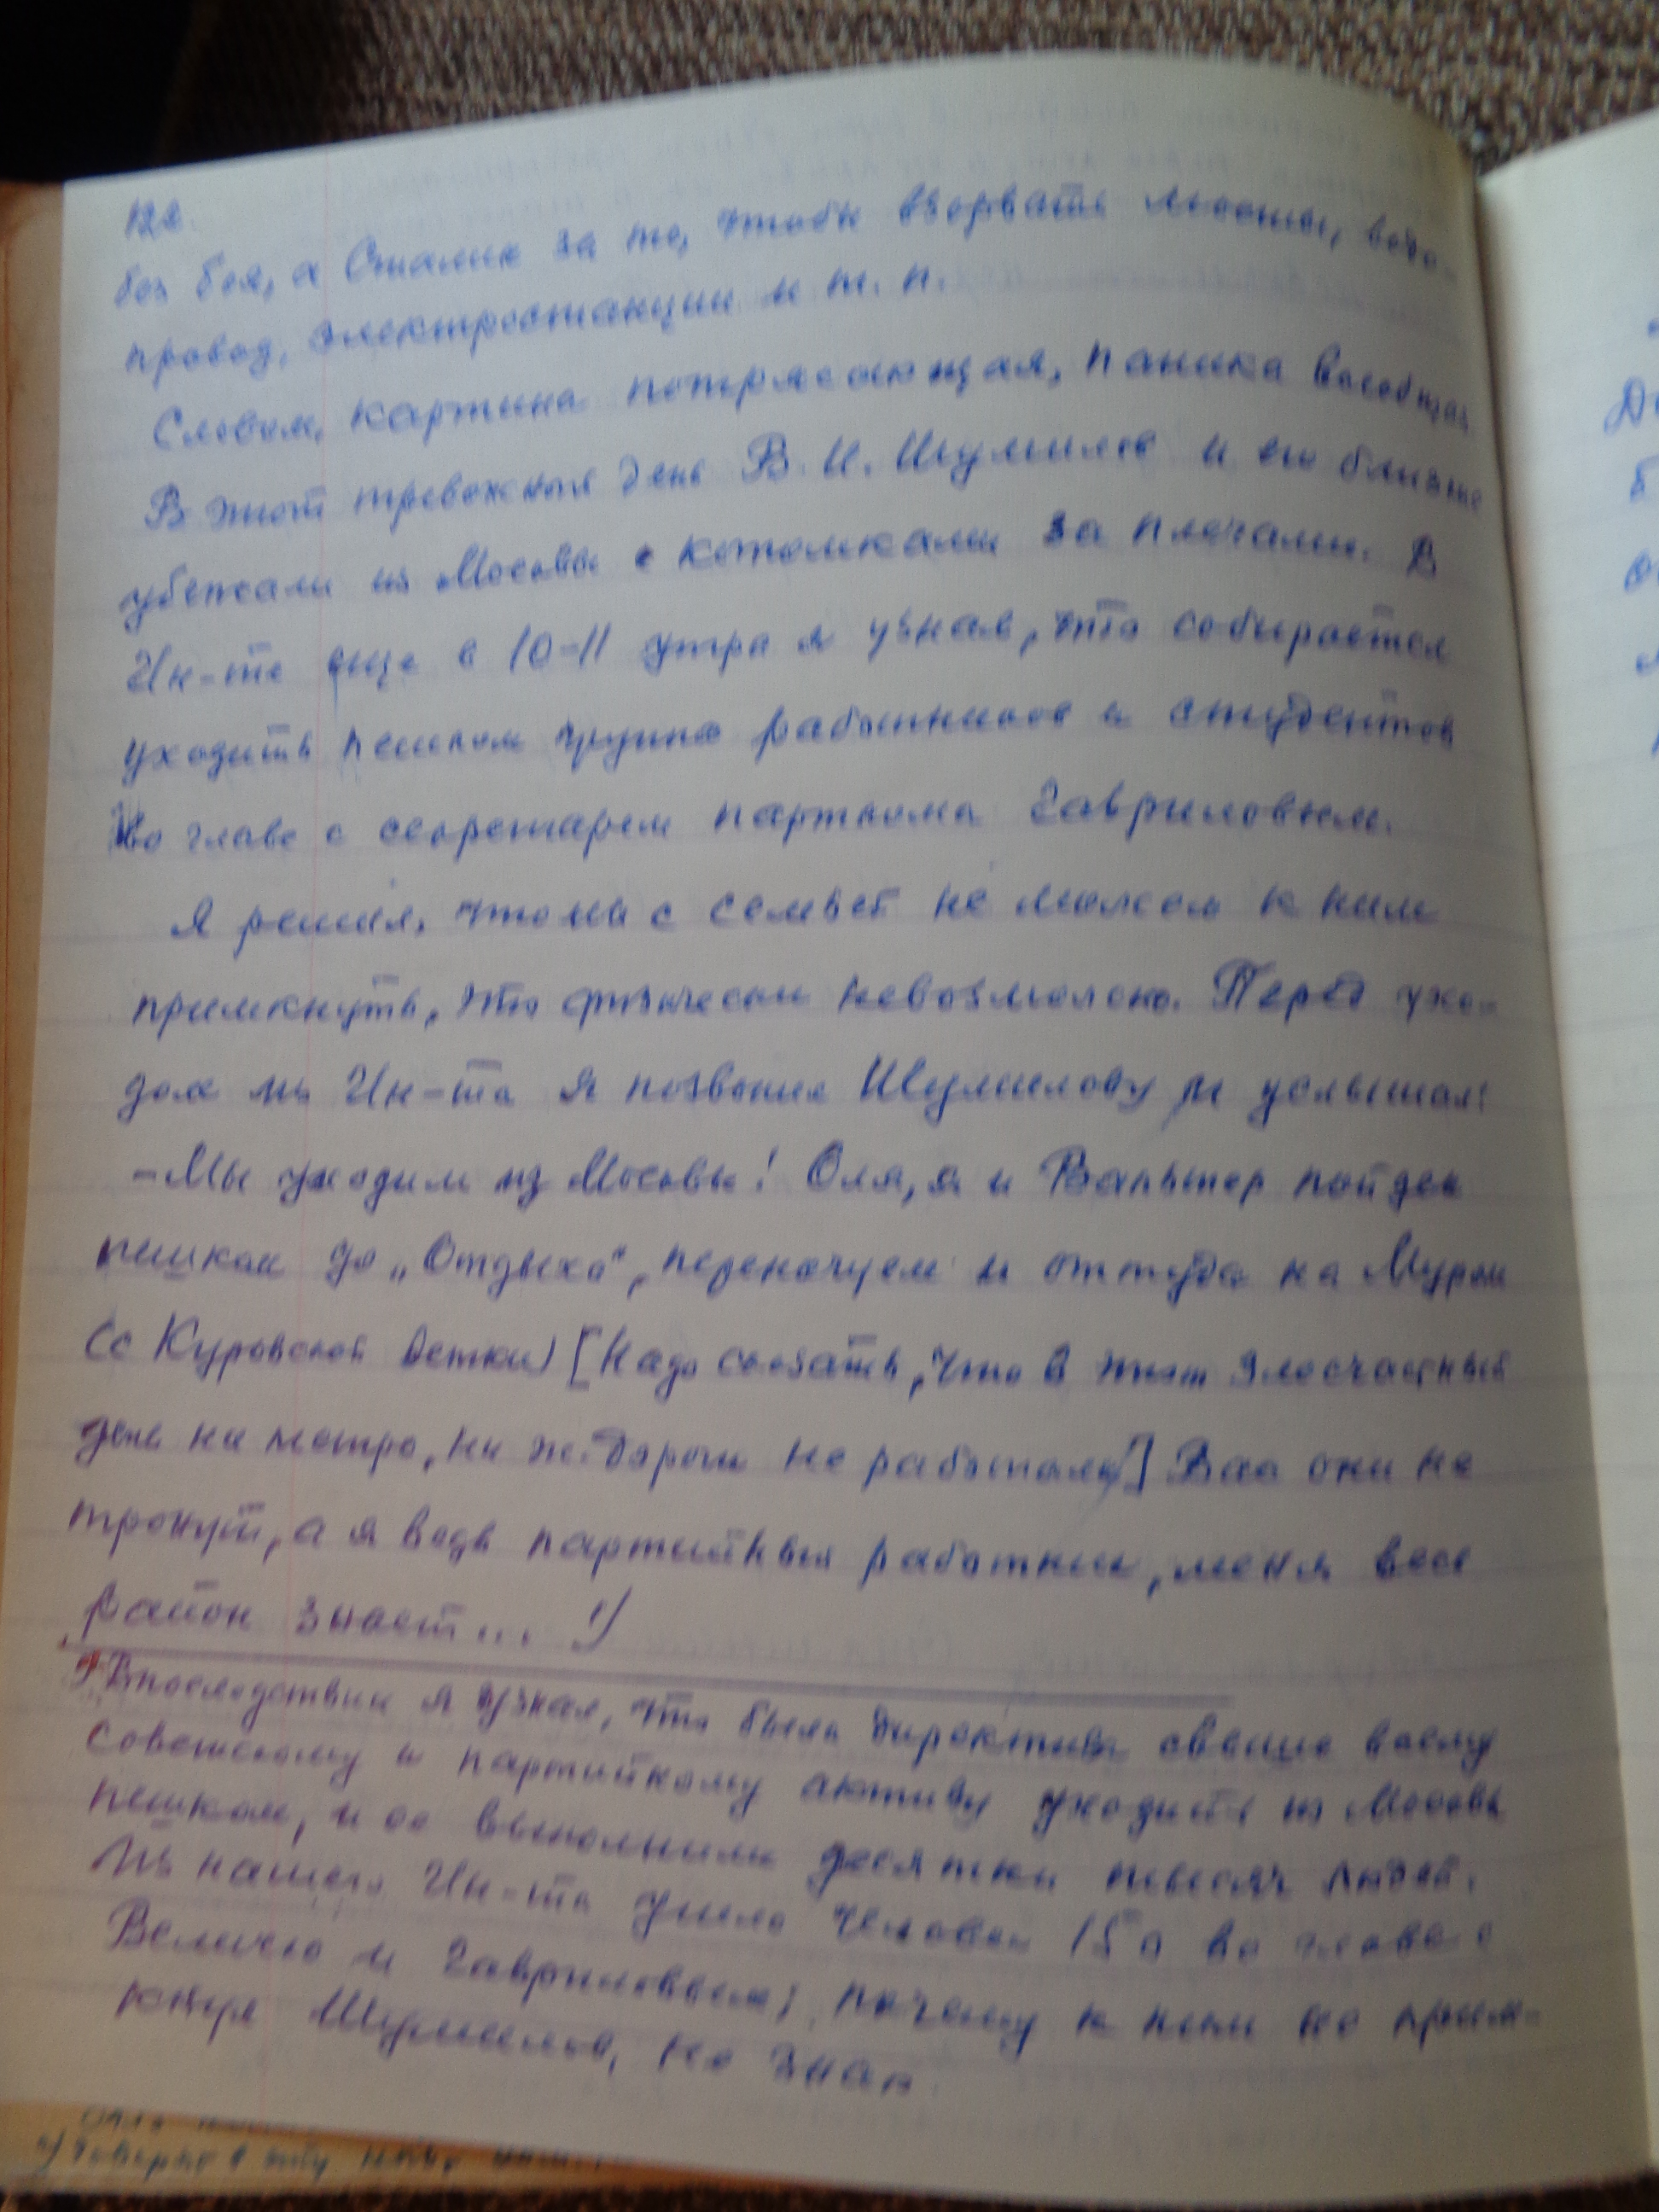 122.
без боя, а Сталин за то, чтобы взорвать мосты, водо-
провод, электростанции и т. п.
Словом, картина потрясающая, паника всеобщая.
В этот тревожный день В. И. Шумилов и его близкие
убежали из Москвы с котомками за плечами. В
Ин-те еще в 10-11 утра я узнал, что собирается
уходить пешком группа работников и студентов
во главе с секретарем парткома Гавриловым.
Я решил, что мы с семьей не можем к ним
примкнуть, это физически невозможно. Перед ухо-
дом из Ин-та я позвонил Шумилову и услышал:
- Мы уходим из Москвы! Оля, я и Вальтер пойдем
пешком до „Отдыха", переночуем и оттуда на Муром
(с Куровской ветки) [Надо сказать, что в этот злосчастный
день ни метро, ни ж. дороги не работали!] Вас они не
тронут, а я ведь партийный работник, меня весь
район знает... 1)
1) Впоследствии я узнал, что была директива свыше всему
советскому и партийному активу уходить из Москвы
пешком, и ее выполнили десятки тысяч людей.
Из нашего Ин-та ушло человек 150 во главе с
Величко и Гавриловым; почему к ним не прим-
кнул Шумилов, не знаю